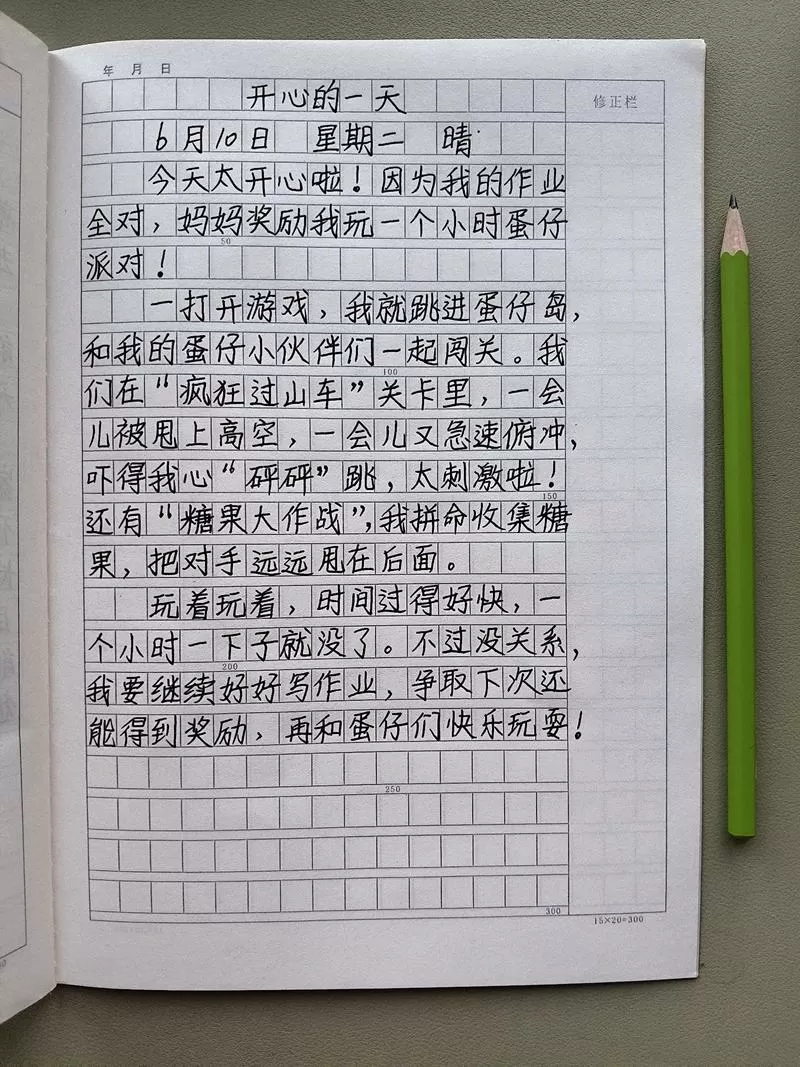 年 月 日
修正栏
开心的一天
6月10日 星期二 晴
今天太开心啦！因为我的作业
全对，妈妈奖励我玩一个小时蛋仔
50
派对！
一打开游戏，我就跳进蛋仔岛，
和我的蛋仔小伙伴们一起闯关。我
100
们在“疯狂过山车”关卡里，一会
儿被甩上高空，一会儿又急速俯冲，
吓得我心“砰砰”跳，太刺激啦！
150
还有“糖果大作战”，我拼命收集糖
果，把对手远远甩在后面。
玩着玩着，时间过得好快，一
个小时一下子就没了。不过没关系，
200
我要继续好好写作业，争取下次还
能得到奖励，再和蛋仔们快乐玩耍！
250
300
15×20=300